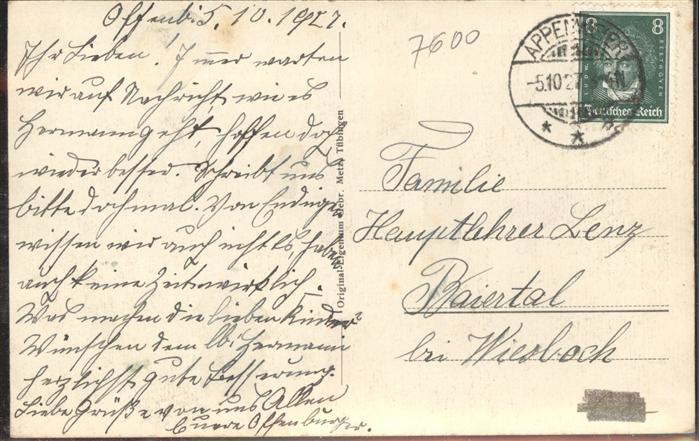 Offenb. 5.10.1927.
Ihr Lieben! Immer warten
wir auf Nachricht wie es
Hermann geht, hoffen doch
wieder besser. Schreibt uns
bitte doch mal. Von Endingen
wissen wir auch nichts, haben
auch keine Zeit wirklich.
Was machen die lieben Kinder?
Wünschen dem lb. Hermann
herzlichst gute Besserung.
Liebe Grüße von uns Allen
Euere Offenburger.
Original-Eigentum Gebr. Metz, Tübingen
7600
APPENWEIER
-5.10.27
8 8
BEETHOVEN
Deutsches Reich
Familie
Hauptlehrer Lenz
Baiertal
bei Wiesloch